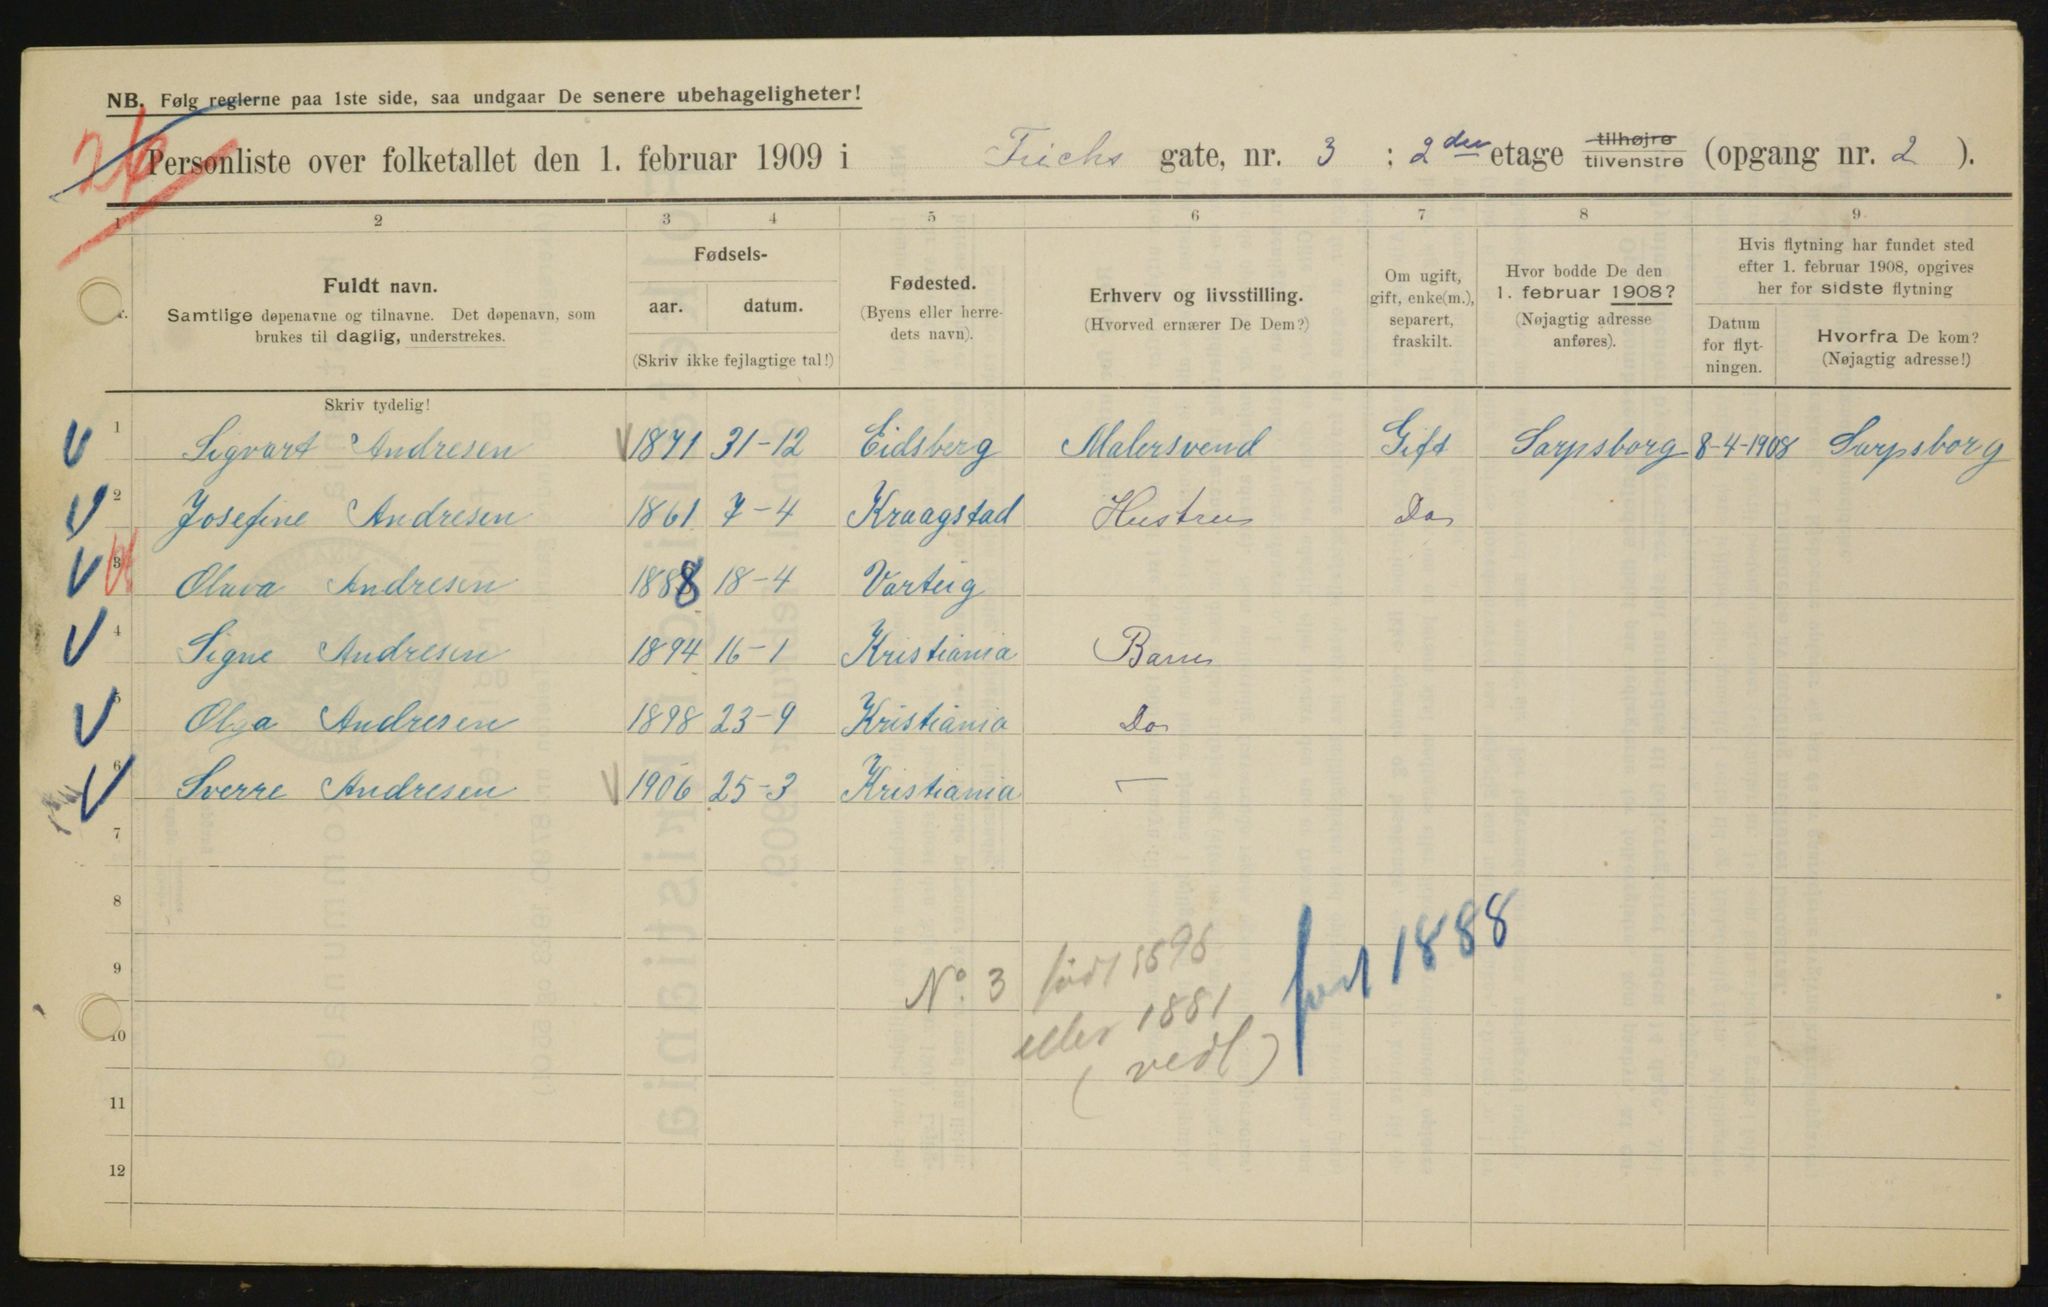 NB. Følg reglerne paa 1ste side, saa undgaar De senere ubehageligheter!
Personliste over folketallet den 1. februar 1909 i Frichs gate, nr. 3 ; 2den etage tilhøjre tilvenstre (opgang nr. 2 ).
1 2 3 4 5 6 7 8 9
Fuldt navn.
Samtlige døpenavne og tilnavne. Det døpenavn, som
brukes til daglig, understrekes.
Fødsels-
aar. datum.
(Skriv ikke fejlagtige tal!)
Fødested.
(Byens eller herre-
dets navn).
Erhverv og livsstilling.
(Hvorved ernærer De Dem?)
Om ugift,
gift, enke(m.),
separert,
fraskilt.
Hvor bodde De den
1. februar 1908?
(Nøjagtig adresse
anføres).
Hvis flytning har fundet sted
efter 1. februar 1908, opgives
her for sidste flytning
Datum
for flyt-
ningen.
Hvorfra De kom?
(Nøjagtig adresse!)
Skriv tydelig!
1 Sigvart Andresen 1871 31-12 Eidsberg Malersvend Gift Sarpsborg 8-4-1908 Sarpsborg
2 Josefine Andresen 1861 7-4 Kraagstad Hustru Do
3 Olava Andresen 1888 18-4 Varteig
4 Signe Andresen 1894 16-1 Kristiania Barn
5 Olga Andresen 1898 23-9 Kristiania Do
6 Sverre Andresen 1906 25-3 Kristiania —
7
8
9
No. 3 født 1898
eller 1881
(vedl)
født 1888
10
11
12